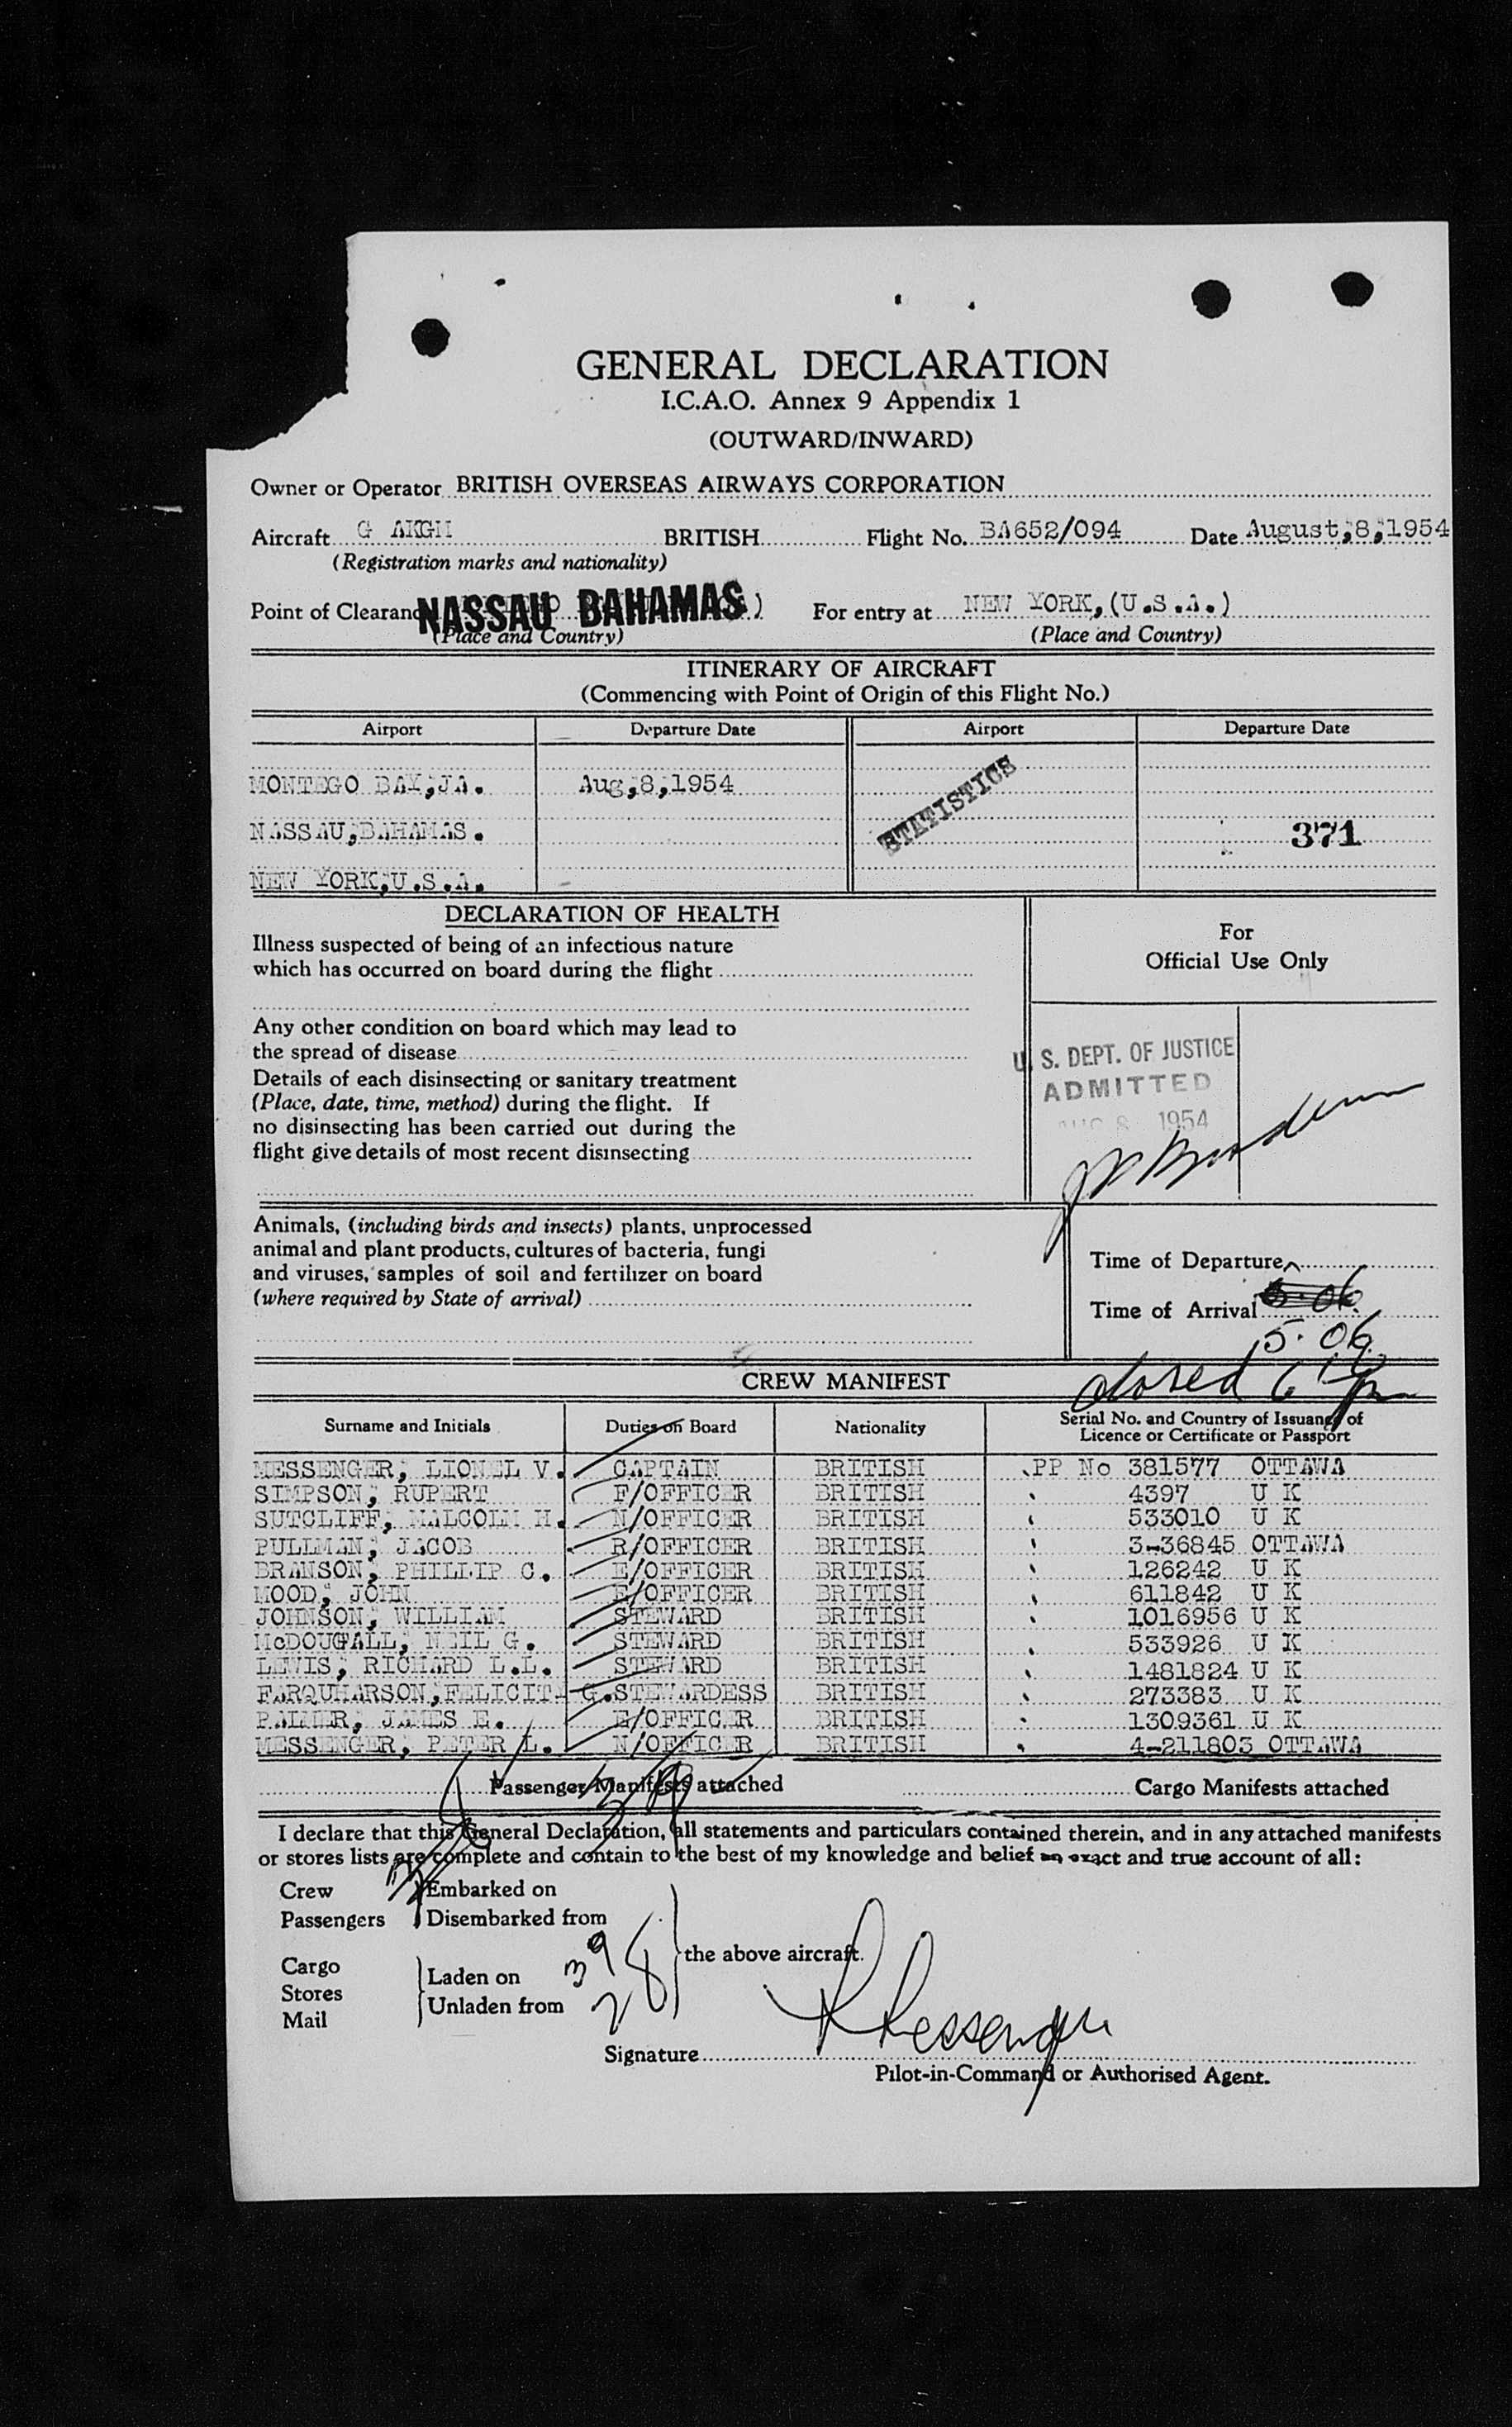 GENERAL DECLARATION
I.C.A.O. Annex 9 Appendix 1
(OUTWARD/INWARD)
Owner or Operator BRITISH OVERSEAS AIRWAYS CORPORATION
Aircraft G AKGH BRITISH Flight No. BA652/094 Date August,8,1954
(Registration marks and nationality)
Point of Clearanc NASSAU BAHAMAS ) For entry at NEW YORK,(U.S.A.)
(Place and Country) (Place and Country)
ITINERARY OF AIRCRAFT
(Commencing with Point of Origin of this Flight No.)
Airport Departure Date Airport Departure Date
MONTEGO BAY,JA. Aug,8,1954 STATISTICS
NASSAU,BAHAMAS. 371
NEW YORK,U.S.A.
DECLARATION OF HEALTH
For
Official Use Only
Illness suspected of being of an infectious nature
which has occurred on board during the flight
Any other condition on board which may lead to
the spread of disease
Details of each disinsecting or sanitary treatment
(Place, date, time, method) during the flight. If
no disinsecting has been carried out during the
flight give details of most recent disinsecting
U. S. DEPT. OF JUSTICE
ADMITTED
AUG 8 1954
Animals, (including birds and insects) plants, unprocessed
animal and plant products, cultures of bacteria, fungi
and viruses, samples of soil and fertilizer on board
(where required by State of arrival)
Time of Departure
Time of Arrival
5.06
closed
CREW MANIFEST
Surname and Initials Duties on Board Nationality Serial No. and Country of Issuance of
Licence or Certificate or Passport
MESSENGER, LIONEL V. CAPTAIN BRITISH PP No 381577 OTTAWA
SIMPSON, RUPERT F/OFFICER BRITISH 4397 U K
SUTCLIFF, MALCOLM H. N/OFFICER BRITISH 533010 U K
PULLMAN, JACOB R/OFFICER BRITISH 3-36845 OTTAWA
BRANSON, PHILLIP C. E/OFFICER BRITISH 126242 U K
MOOD, JOHN E/OFFICER BRITISH 611842 U K
JOHNSON, WILLIAM STEWARD BRITISH 1016956 U K
McDOUGALL, NEIL G. STEWARD BRITISH 533926 U K
LEWIS, RICHARD L.L. STEWARD BRITISH 1481824 U K
FARQUHARSON,FELICITA G.STEWARDESS BRITISH 273383 U K
PALMER, JAMES E. E/OFFICER BRITISH 1309361 U K
MESSENGER, PETER L. N/OFFICER BRITISH 4-211803 OTTAWA
Passenger Manifests attached Cargo Manifests attached
I declare that this General Declaration, all statements and particulars contained therein, and in any attached manifests
or stores lists are complete and contain to the best of my knowledge and belief an exact and true account of all:
Crew
Passengers
Embarked on
Disembarked from
Cargo
Stores
Mail
Laden on
Unladen from
39
28
the above aircraft.
Signature
Pilot-in-Command or Authorised Agent.